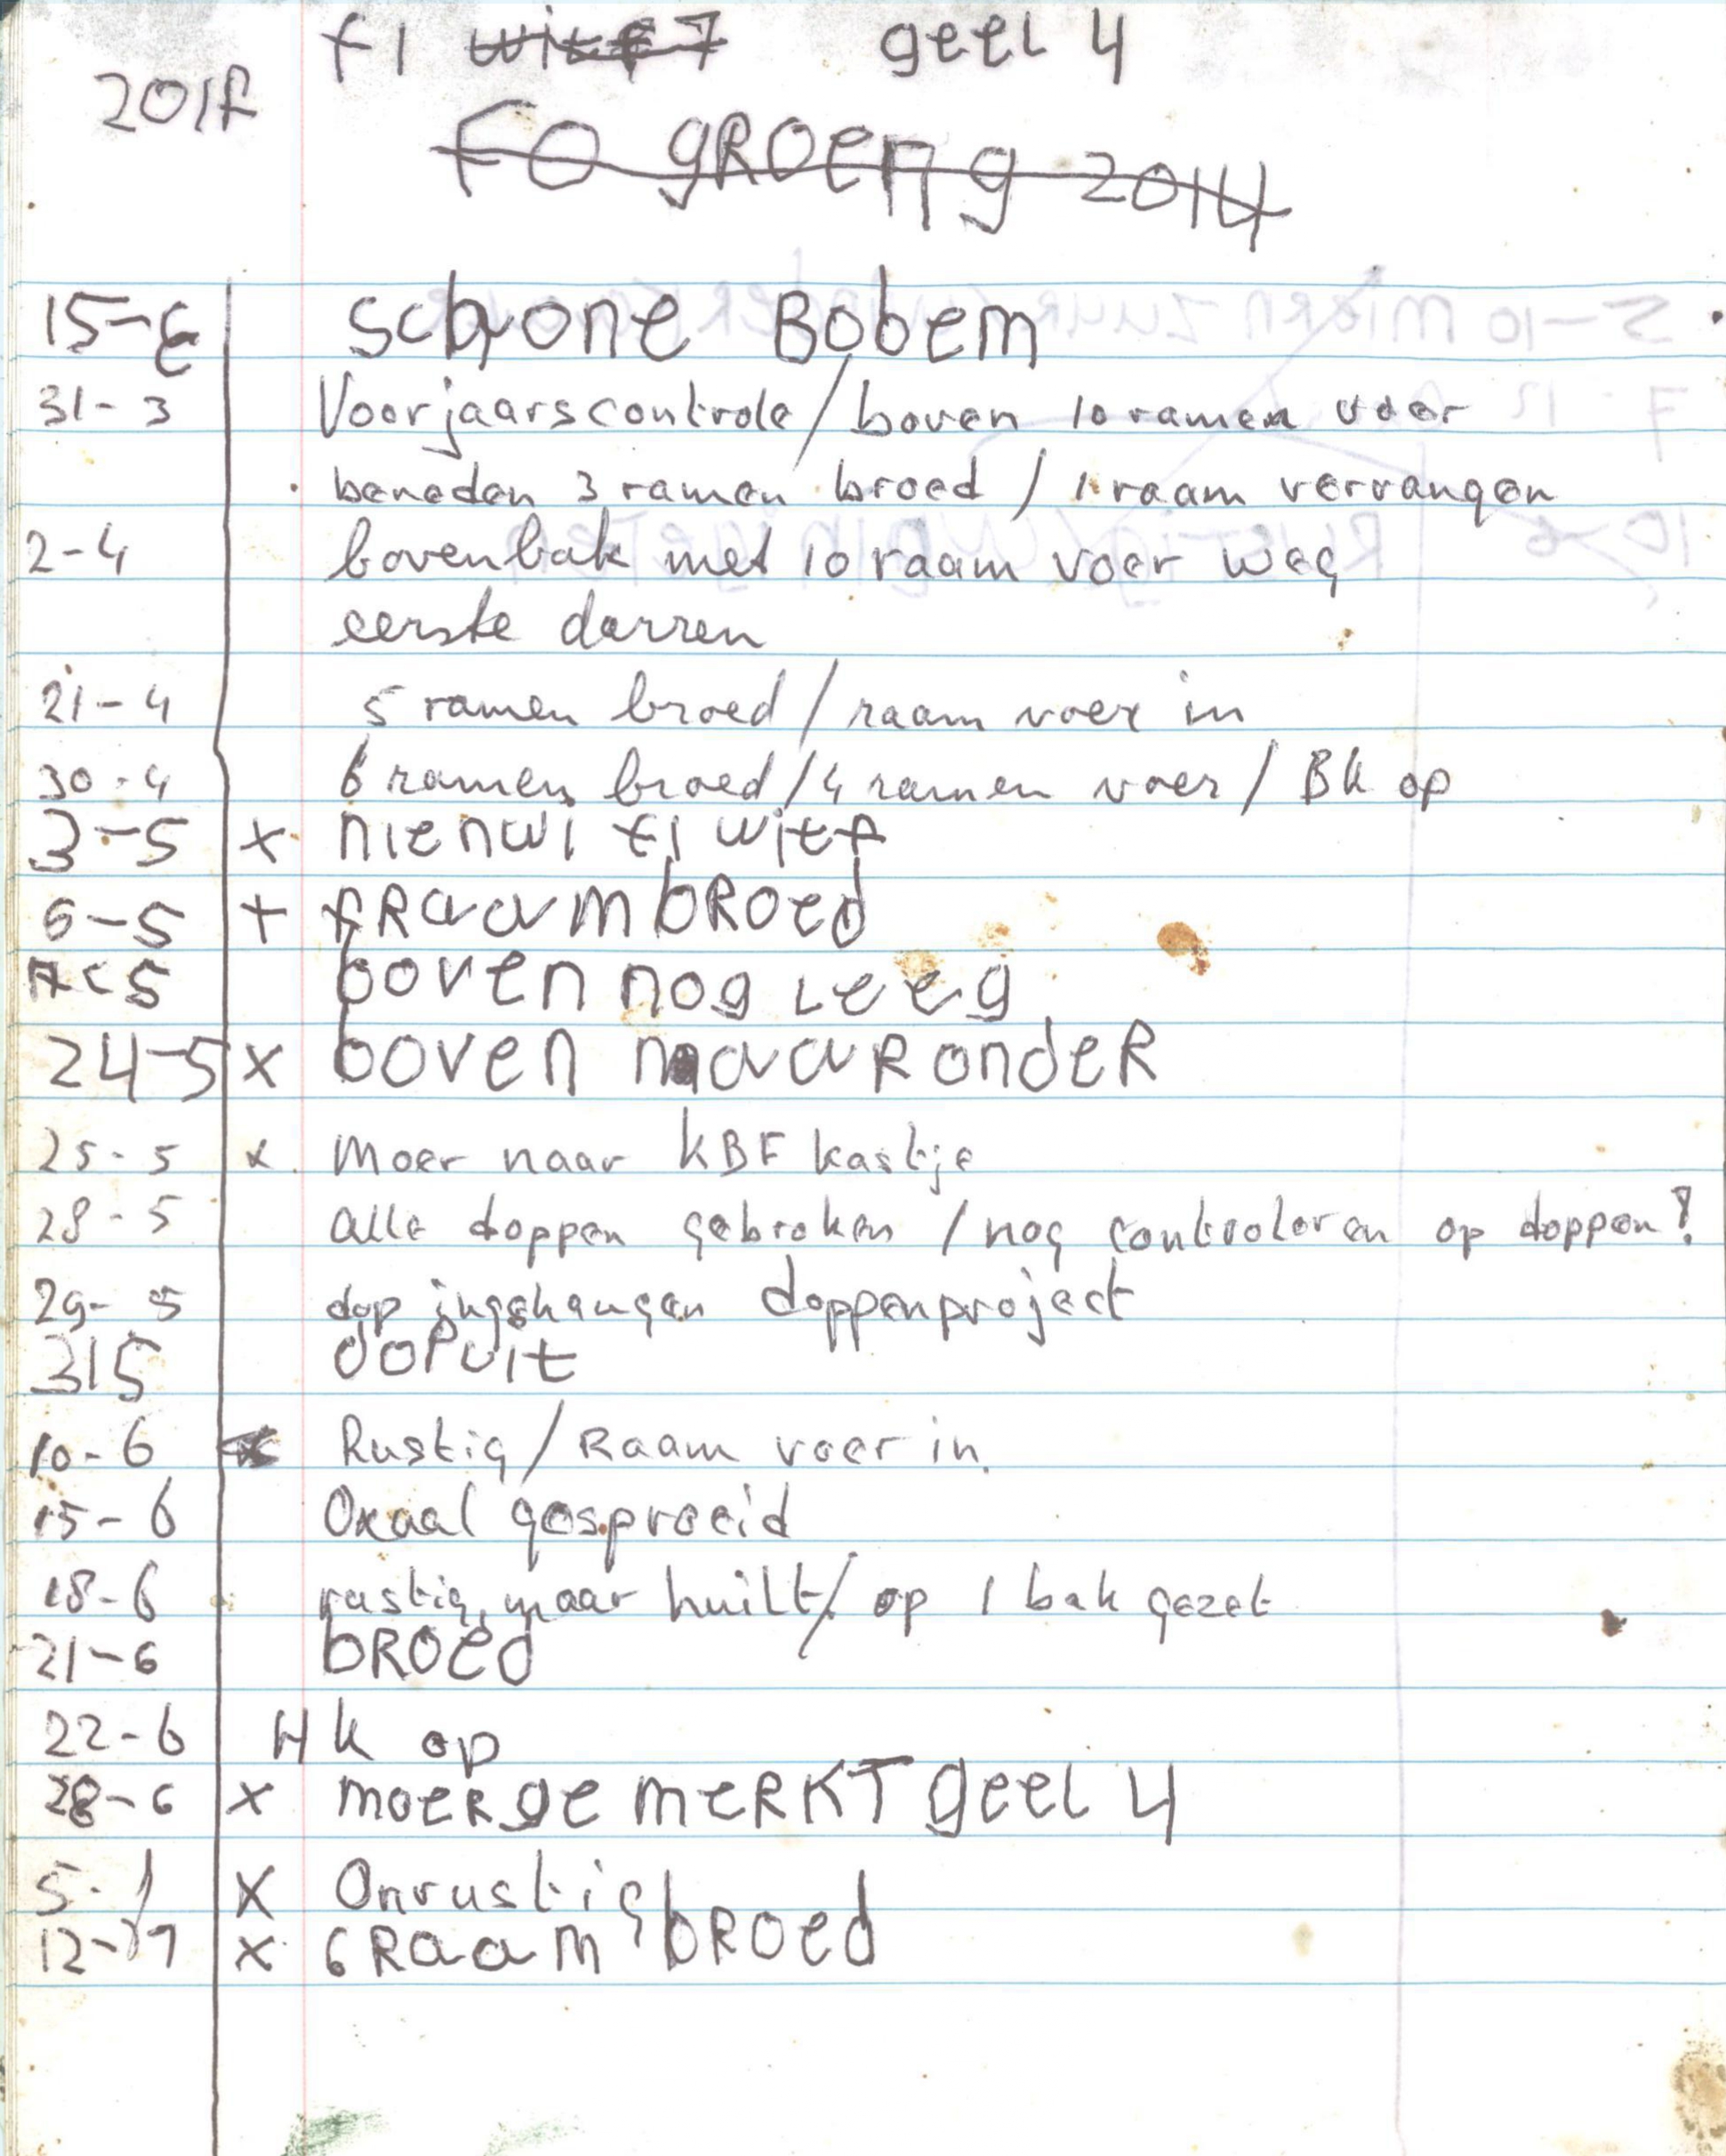 F1 wit f 7 geel 4
201f
FO gROEng 2014
15-6 schone Bobem
31-3 Voorjaarscontrole/boven 10 ramen voer
beneden 3 ramen broed / 1 raam vervangen
2-4 bovenbak met 10 raam voer weg
eerste darren
21-4 5 ramen broed / raam voer in
30-4 6 ramen broed / 4 ramen voer / Bk op
3-5 x nienwi f1 witf
6-5 + fRaam bROed
5 boven nog Leeg
24-5 x boven naaR ondeR
25-5 x. Moer naar KBF kastje
28-5 alle doppen gebroken / nog controleren op doppen!
29-5 dop ingehangen doppenproject
315 dopuit
10-6 Rustig / Raam voer in.
15-6 Oxaal gesproeid
18-6 rustig, maar huilt / op 1 bak gezet
21-6 bROed
22-6 Hk op
28-6 x moeRge meRKT geel 4
5- x Onrustig
12- x 6 Raam bROed